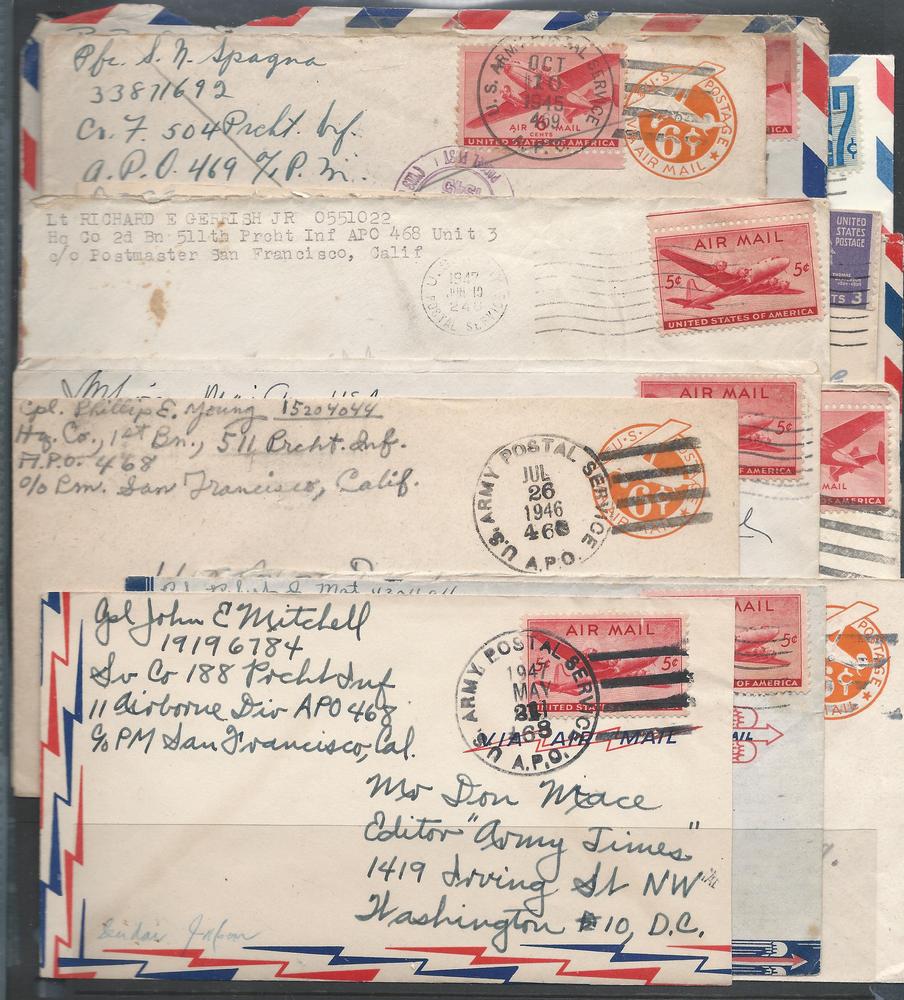 Pfc. S. N. Spagna
33871692
Co. F. 504 Prcht. Inf.
A.P.O. 469 % P.M.
U.S. ARMY POSTAL SERVICE
OCT
1945
469
A.P.O.
AIR 6 MAIL
CENTS
UNITED STATES OF AMERICA
U.S. POSTAGE
6¢
AIR MAIL
7¢
Lt RICHARD E GERRISH JR 0551022
Hq Co 2d Bn 511th Prcht Inf APO 468 Unit 3
c/o Postmaster San Francisco, Calif
1947
JUN
POSTAL SERVICE
AIR MAIL
5¢ 5¢
UNITED STATES OF AMERICA
UNITED
STATES
POSTAGE
THOMAS
CENTS 3
AIR MAIL
5¢
OF AMERICA
MAIL
OF AMERICA
Cpl. Phillip E. Young 15204044
Hq. Co., 1st Bn., 511 Prcht. Inf.
A.P.O. 468
c/o P.m. San Francisco, Calif.
U.S. ARMY POSTAL SERVICE
JUL
26
1946
468
A.P.O.
U.S. POSTAGE
6¢
AIR MAIL
Cpl John E Mitchell
19196784
Sv Co 188 Prcht Inf
11 Airborne Div APO 468
c/o PM San Francisco, Cal.
U.S. ARMY POSTAL SERVICE
1947
MAY
468
A.P.O.
AIR MAIL
5¢
UNITED STA
VIA AIR MAIL
MAIL
5¢
OF AMERICA
POSTAGE
Mr Don Mace
Editor "Army Times"
1419 Irving St NW
Washington 10, D.C.